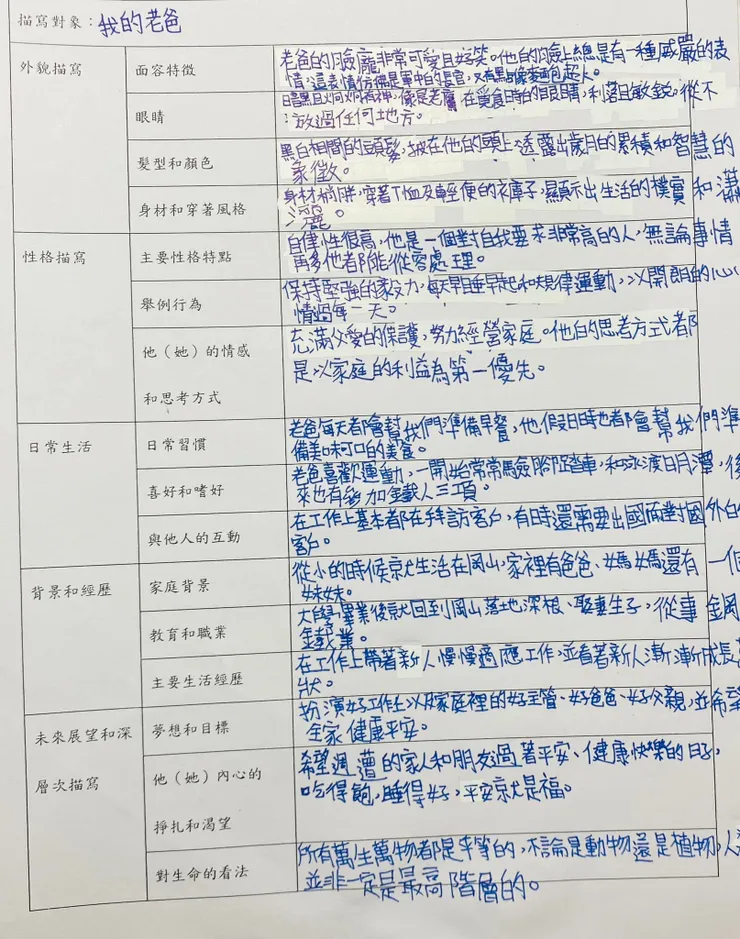 描寫對象：我的老爸
外貌描寫
面容特徵
老爸的臉龐非常可愛且好笑。他的臉上總是有一種威嚴的表
情，這表情仿佛是軍中的長官，又有點像麵包超人。
眼睛
暗黑且炯炯有神，像是老鷹在覓食時的眼睛，利落且敏銳，從不
放過任何地方。
髮型和顏色
黑白相間的頭髮，披在他的頭上，透露出歲月的累積和智慧的
象徵。
身材和穿著風格
身材稍胖，穿著T恤及輕便的衣庫子，顯示出生活的樸實和瀟
灑。
性格描寫
主要性格特點
自律性很高，他是一個對自我要求非常高的人，無論事情
再多他都能從容處理。
舉例行為
保持堅強的毅力，每天早睡早起和規律運動，以開朗的心
情過每一天。
他（她）的情感
和思考方式
充滿父愛的保護，努力經營家庭。他的思考方式都
是以家庭的利益為第一優先。
日常生活
日常習慣
老爸每天都會幫我們準備早餐，他假日時也都會幫我們準
備美味可口的美食。
喜好和嗜好
老爸喜歡運動，一開始常常騎腳踏車，和泳渡日月潭，後
來也有參加鐵人三項。
與他人的互動
在工作上基本都在拜訪客戶，有時還需要出國面對國外的
客戶。
背景和經歷
家庭背景
從小的時候就生活在岡山，家裡有爸爸、媽媽還有一個
妹妹。
教育和職業
大學畢業後就回到岡山落地深根、娶妻生子，從事金岡
金載業。
主要生活經歷
在工作上帶著新人慢慢適應工作，並看著新人漸漸成長
狀。
未來展望和深
層次描寫
夢想和目標
扮演好工作上以及家庭裡的好主管、好爸爸、好父親，並希望
全家健康平安。
他（她）內心的
掙扎和渴望
希望週遭的家人和朋友過著平安、健康快樂的日子，
吃得飽，睡得好，平安就是福。
對生命的看法
所有萬生萬物都是平等的，不論是動物還是植物，人
並非一定是最高階層的。